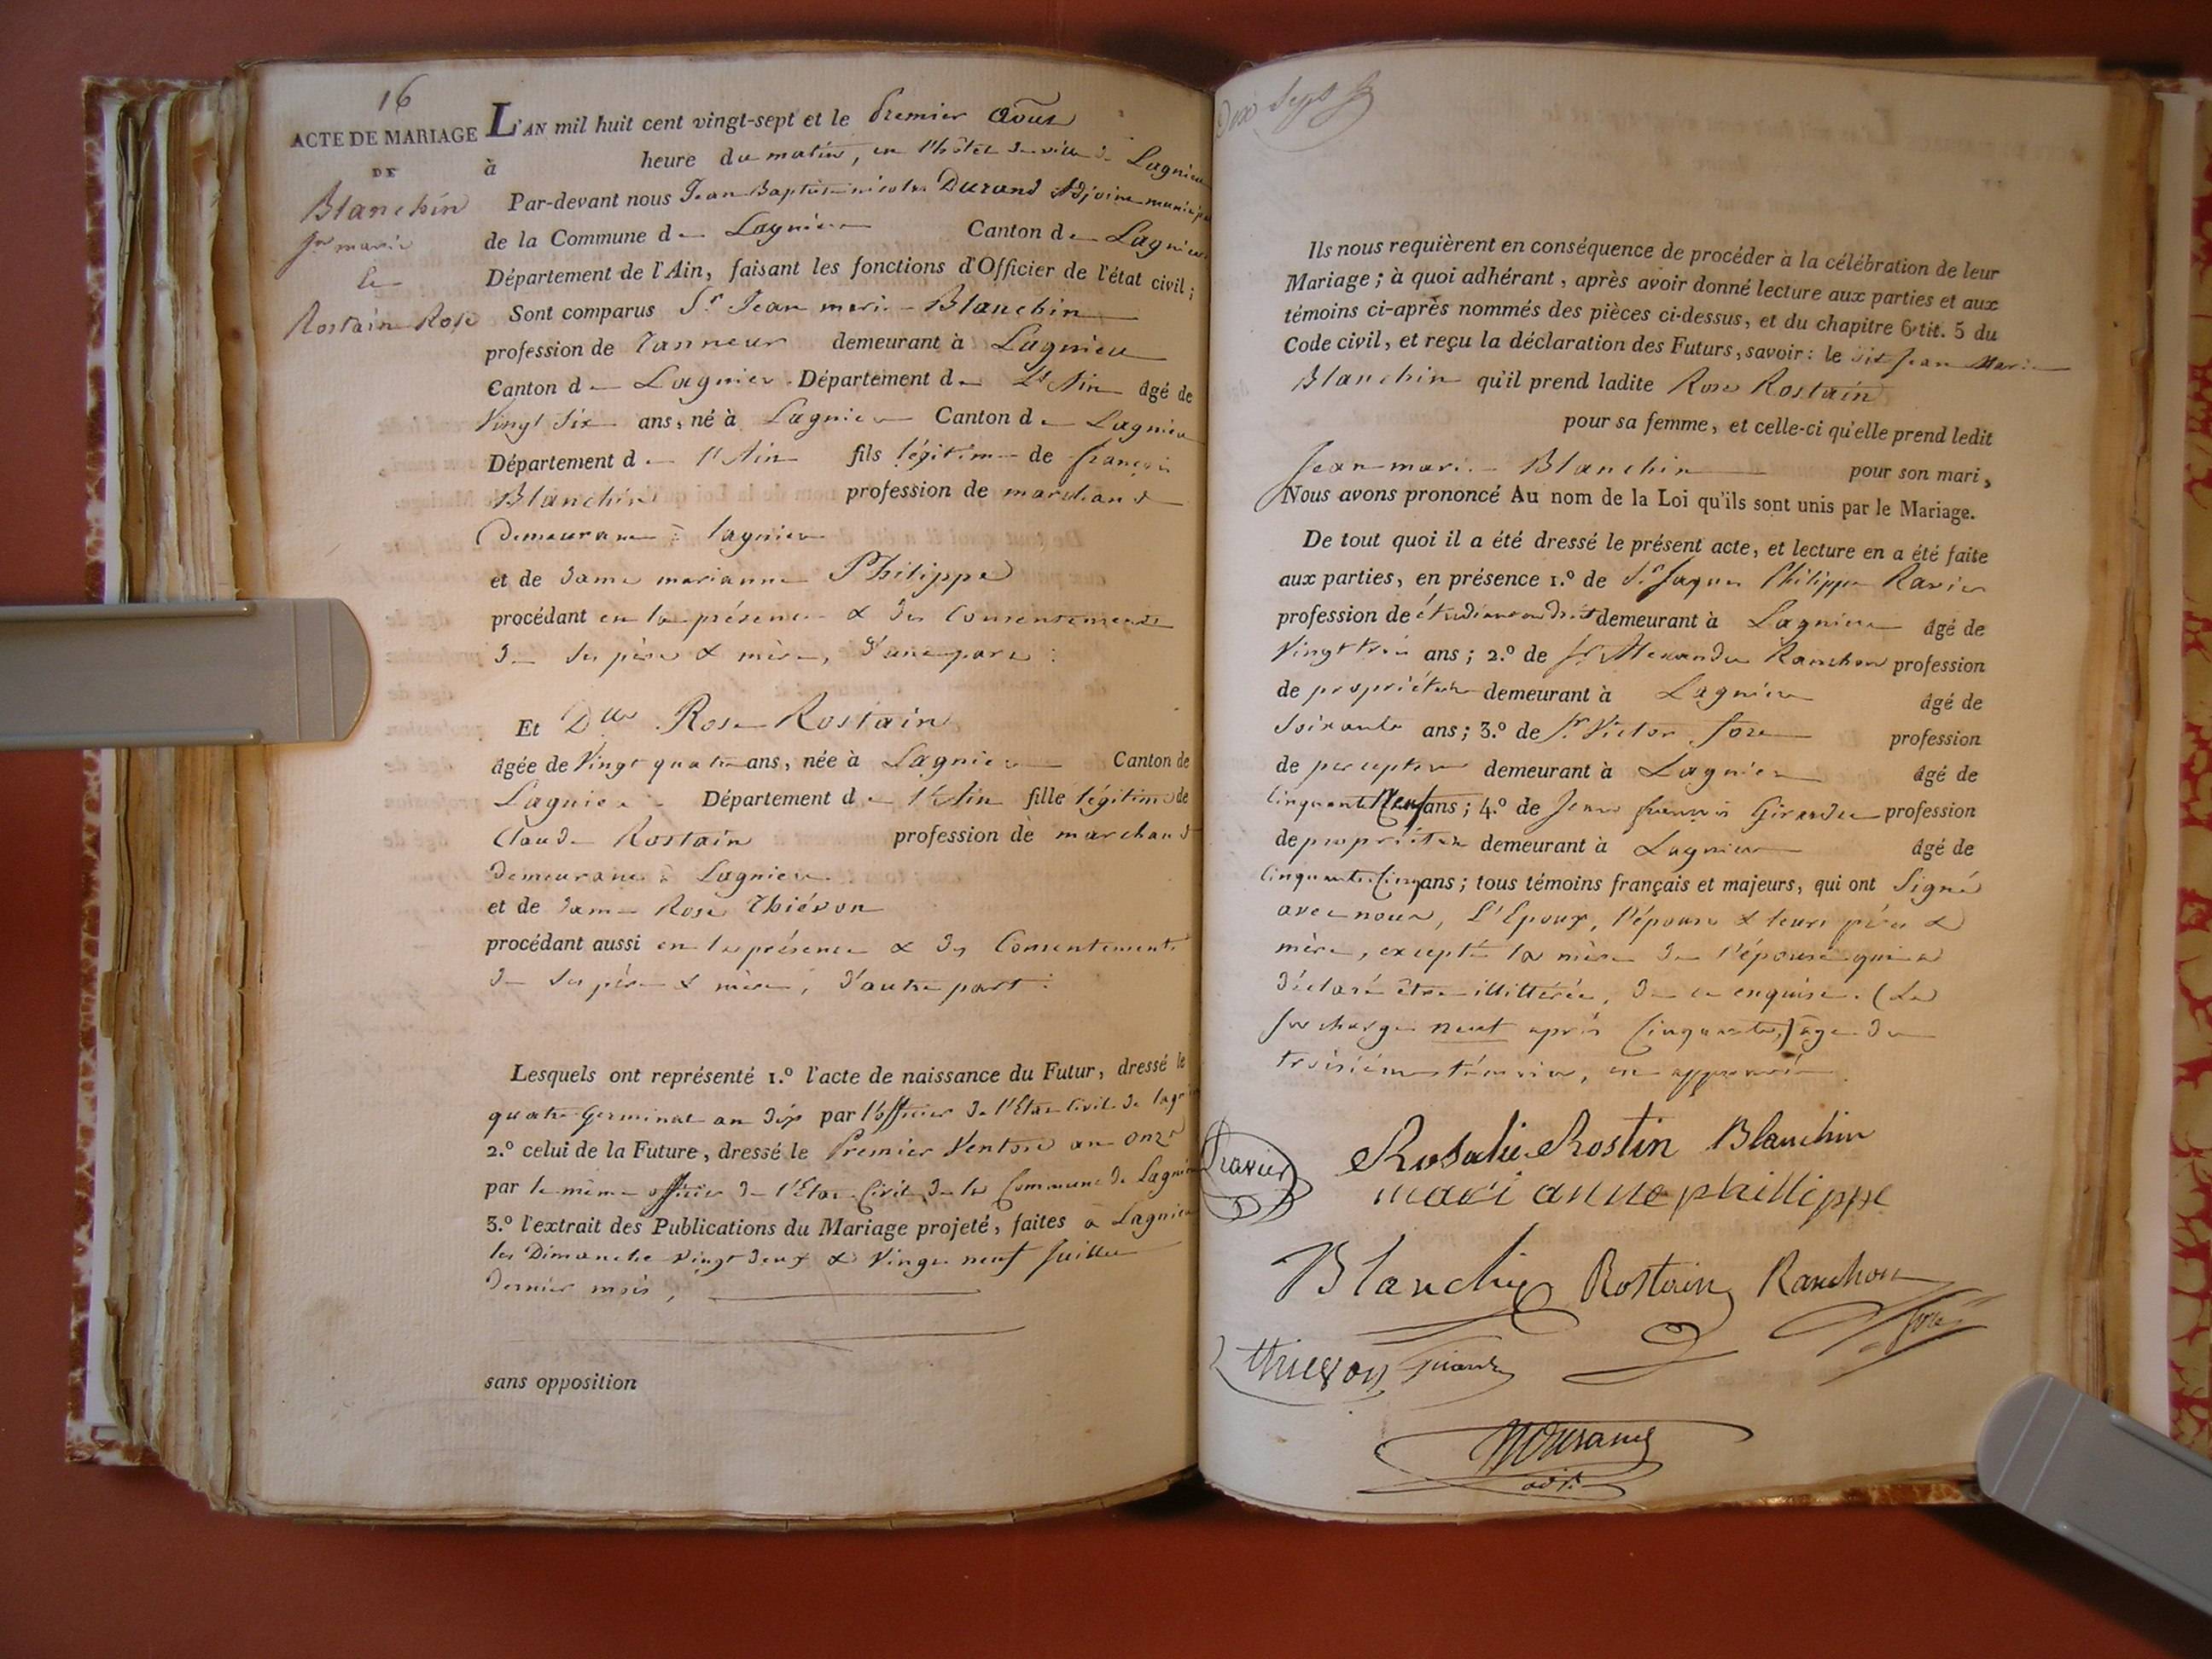 16
ACTE DE MARIAGE
DE
Blanchin
Jn marie
et
Rostain Rose
L'AN mil huit cent vingt-sept et le Premier Août
à heure du matin, en l'hôtel de ville de Lagnieu
Par-devant nous Jean Baptiste nicolas Durand Adjoint municipal
de la Commune de Lagnieu Canton de Lagnieu
Département de l'Ain, faisant les fonctions d'Officier de l'état civil;
Sont comparus Sr Jean marie Blanchin
profession de Tanneur demeurant à Lagnieu
Canton de Lagnieu Département de L'Ain âgé de
Vingt Six ans, né à Lagnieu Canton de Lagnieu
Département de l'Ain fils légitime de françois
Blanchin profession de marchand
demeurant à lagnieu
et de dame marianne Philippe
procédant en la présence & du Consentement
de ses père & mère, d'une part :
Et Dlle Rose Rostain
âgée de Vingt quatre ans, née à Lagnieu Canton de
Lagnieu Département de l'Ain fille légitime de
Claude Rostain profession de marchand
demeurant à Lagnieu
et de dame Rose Thiévon
procédant aussi en la présence & du Consentement
de ses père & mère, d'autre part :
Lesquels ont représenté 1.º l'acte de naissance du Futur, dressé le
quatre Germinal an dix par l'officier de l'Etat Civil de lagnieu
2.º celui de la Future, dressé le Premier Ventose an onze
par le même officier de l'Etat Civil de la Commune de Lagnieu
3.º l'extrait des Publications du Mariage projeté, faites à Lagnieu
les Dimanche vingt deux & Vingt neuf Juillet
dernier mois,
sans opposition
Dix Sept
Ils nous requièrent en conséquence de procéder à la célébration de leur
Mariage; à quoi adhérant, après avoir donné lecture aux parties et aux
témoins ci-après nommés des pièces ci-dessus, et du chapitre 6 tit. 5 du
Code civil, et reçu la déclaration des Futurs, savoir: le dit Jean Marie
Blanchin qu'il prend ladite Rose Rostain
pour sa femme, et celle-ci qu'elle prend ledit
Jean marie Blanchin pour son mari,
Nous avons prononcé Au nom de la Loi qu'ils sont unis par le Mariage.
De tout quoi il a été dressé le présent acte, et lecture en a été faite
aux parties, en présence 1.º de Sr Jaques Philippe Ravier
profession de étudiant en droit demeurant à Lagnieu âgé de
Vingt trois ans; 2.º de Sr Alexandre Ranchon profession
de propriétaire demeurant à Lagnieu âgé de
Soixante ans; 3.º de Sr Victor profession
de percepteur demeurant à Lagnieu âgé de
Cinquante Neuf ans; 4.º de Jean françois Girardin profession
de propriétaire demeurant à Lagnieu âgé de
Cinquante Cinq ans; tous témoins français et majeurs, qui ont Signé
avec nous, L'Epoux, l'épouse & leurs pères &
mère, excepté la mère de l'épouse qui a
déclaré être illittérée, de ce enquise. (La
surcharge neuf après Cinquante,) âge du
troisième témoin, en approuvée
Ravier
Rosalie Rostin Blanchin
mari anne phillippe
Blanchin Rostain Ranchon
thievon
NDurand
adjt